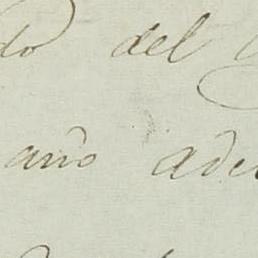 do del
año ade